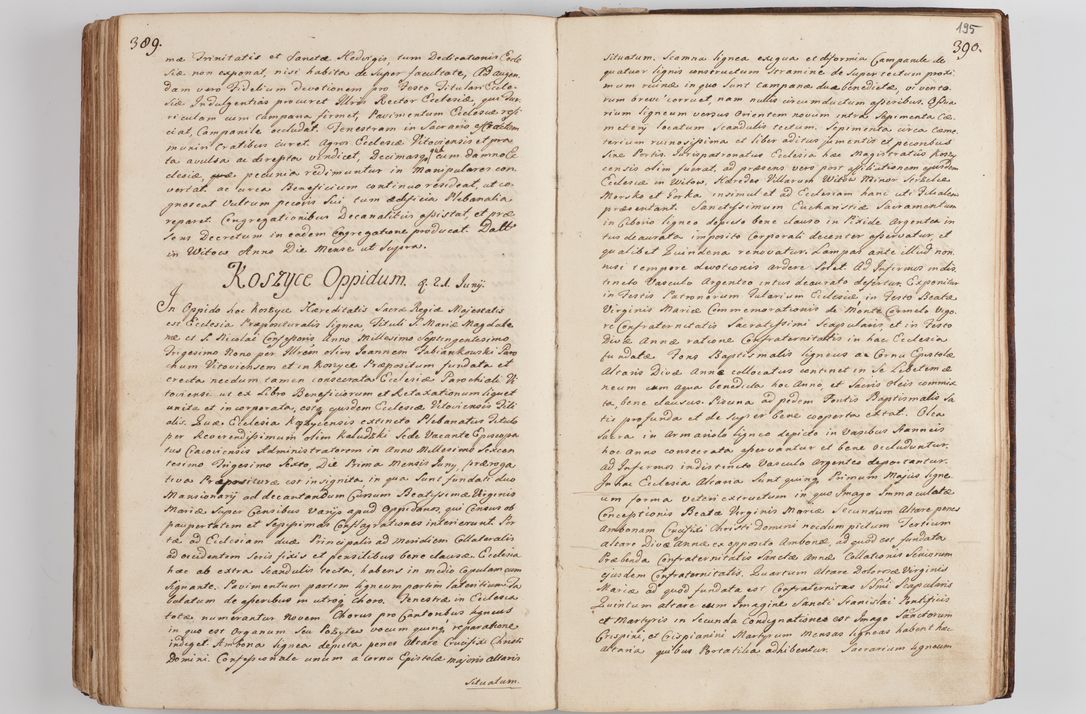 389.
mæ Trinitatis et Sanctæ Hedvigis, tum Dedicationis Eccle
siæ non exponat, nisi habita de super facultate, Ad augen,
dam vero Fidelium devotionem pro Festo Titulari Eccle-
siæ Indulgentias procuret Illris Rector Ecclesiæ, qui
riculam cum campana firmet, Pavimentum Ecclesiæ refi
ciat, Campanile occludat. Fenestram in Sacrario
munire Cratibus curet. Agros Ecclesiæ Vitoviensis et pra
ta avulsa ac derepta vindicet, Decimasq cum damno Ec
clesiæ, quæ pecunia redimuntur in Manipulares con
vertat. ac circa Beneficium continuo resideat, ut co,
gnoscat Vultum pecoris Sui tum ædificia Plebanalia
reparet. Congregationibus Decanalibus assistat, et præ
sens Decretum in eadem Congregatione producat. Datt:
in Witow Anno Die Mense ut Supra.
Koszyce Oppidum. 21 Junij.
In Oppido hoc Koszyce Hæreditatis Sacræ Regiæ Majestatis
est Ecclesia Præposituralis lignea Tituli S. Mariæ Magdale
næ et S. Nicolai Confessoris Anno Millesimo Septingentesimo
Trigesimo Nono per Illrem olim Joannem Fabiankowski Paro
chum Vitoviensem et in Koszyce Præpositum fundata et
erecta necdum tamen consecrata Ecclesiæ Parochiali Vi
toviensi ut ex Libro Beneficiorum et Retaxationum liquet
unita et incorporata, estq ejusdem Ecclesiæ Vitoviensis Fili
alis. Quæ Ecclesia Koszycensis extincto Plebanatus Titulo
per Reverendissimum olim Sede Vacante Episcopa
tus Cracoviensis Administratorem in Anno Millesimo Sexcen
tesimo Trigesimo Sexto, Die Prima Mensis Juny, præroga
tiva Præpositura est insignita in qua Sunt fundati duo
Mansionarij ad decantandum Cursum Beatissimæ Virginis
Mariæ Super Censibus Varijs apud Oppidanos, qui Census ob
paupertatem et Sæpissimas Conflagrationes interierunt. Por
tæ ad Ecclesiam duæ Principalis ad Meridiem Collateralis
ad occidentem Seris fixis et pensilibus bene clausæ. Ecclesia
hæc ab extra Scandulis tecta, habens in medio Copulam cum
Signante. Pavimentum partim ligneum partim lateritium. Ta
bulatum de asseribus in utroq choro. Fenestræ in Ecclesia
totæ numerantur Novem Chorus pro Cantoribus ligneus
in quo est Organum Seu Pozytew vocum quinq reparatione
indiget. Ambona lignea depicta penes Altare Crucifixi Christi
Domini. Confessionale unum a Cornu Epistolæ majoris altaris
Situatum.
195
390.
Situatum. Scamna lignea exigua et difformia Campanile de
quatuor lignis constructum Stramine de Super tectum proxi
mum ruinæ in quo Sunt campanæ duæ benedictæ, vi vento
rum breve corruet, nam nullis circumductum asseribus. Ossua
rium ligneum versus Orientem novum intra Sepimenta Cæ
meterij locatum Scandulis tectum. Sepimenta circa Cæme
terium ruinosissima et liber aditus jumentis et pecoribus
Sine Portis. Jurispatronatus Ecclesia hæc Magistratus Koszy
censis olim fuerat, ad præsens vero post affiliationem ejusdem
Ecclesiæ in Witow, Hæredes Villarum Witow Minor
Morsko et Gorka insimul et ad Ecclesiam hanc uti Filialem
præsentant. Sanctissimum Eucharistiæ Sacramentum
in Ciborio ligneo depicto bene clauso in Pixide Argentea in
tus deaurata imposito Corporali decenter asservatur, et
qualibet Quindena renovatur. Lampas ante illud non
nisi tempore devotionis ardere Solet. Ad Infirmos indis
tincto Vasculo Argenteo intus deaurato defertur. Exponitur
in Festis Patronorum Tutelarium Ecclesiæ in Festo Beatæ
Virginis Mariæ Commemorationis de Monte Carmelo Vigo-
re Confraternitatis Sacratissimi Scapularis, et in Festo
Divæ Annæ ratione Confraternitatis in hac Ecclesia
fundatæ Fons Baptismalis ligneus a Cornu Epistolæ
Altaris Divæ Annæ collocatus continet in Se Lebetem æ
neum cum Aqua benedicta hoc Anno, et Sacris Oleis commix
ta, bene clausus. Piscina ad pedem Fontis Baptismalis Sa
tis profunda et de Super bene cooperta extat. Olea
Sacra in Armariolo ligneo depicto in Vasibus Stanneis
hoc Anno consecrata asservantur et bene occluduntur.
Ad Infirmos indistincto Vasculo Argenteo deportantur.
In hac Ecclesia Altaria Sunt quinq. Primum Majus ligne-
um forma veteri extructum in quo Imago Immaculatæ
Conceptionis Beatæ Virginis Mariæ Secundum Altare penes
Ambonam Crucifixi Christi Domini necdum pictum Tertium
altare Divæ Annæ ex opposito Ambonæ, ad quod est fundata
Præbenda Confraternitatis Sanctæ Annæ Collationis Seniorum
ejusdem Confraternitatis. Quartum Altare Dolorosæ Virginis
Mariæ ad quod fundata est Confraternitas Ssmi Scapularis
Quintum altare cum Imagine Sancti Stanislai Pontificis
et Martyris in Secunda Condignationes est Imago Sanctorum
Crispini, et Crispianini Martyrum Mensas ligneas habent hæc
Altaria quibus Portatilia adhibentur. Sacrarium ligneum